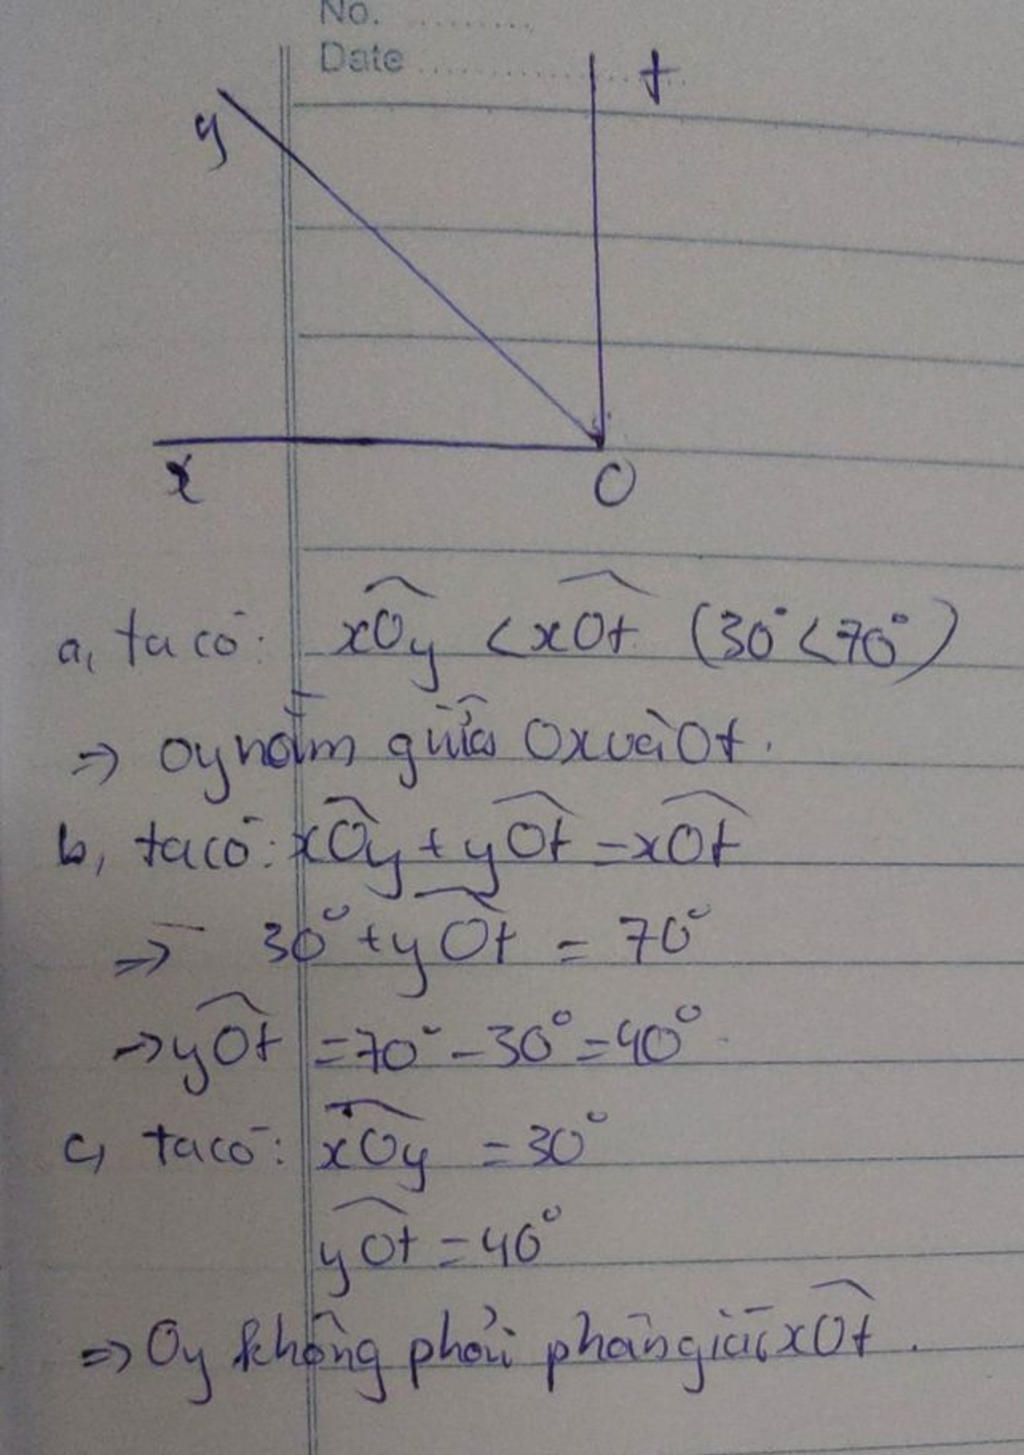 No. ............
Date ......................
y
t
x
O
a, ta có: xÔy < xÔt (30° < 70°)
=> Oy nằm giữa Ox và Ot.
b, ta có: xÔy + yÔt = xÔt
=> 30° + yÔt = 70°
→ yÔt = 70° - 30° = 40°
c, ta có: xÔy = 30°
yÔt = 40°
=> Oy không phải phân giác xÔt.